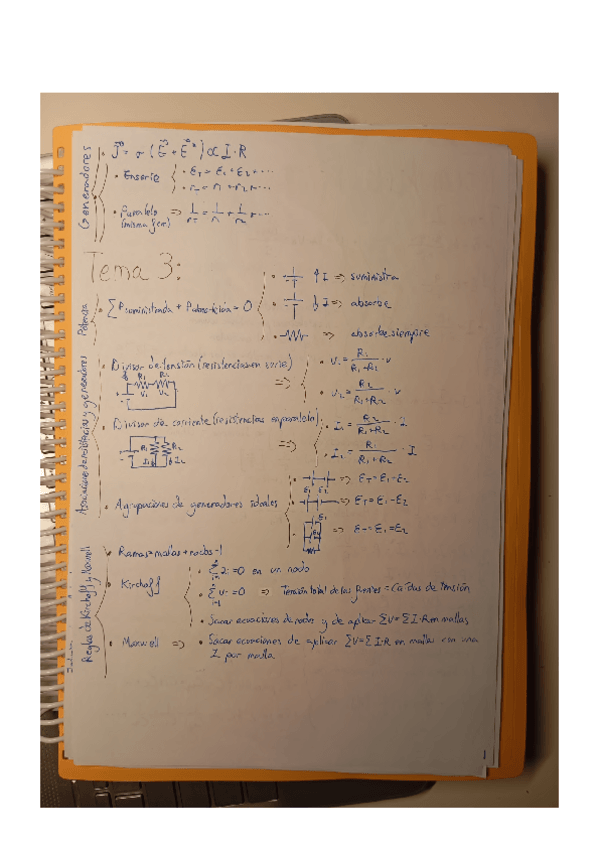 Generadores
J = σ (E + E*) ∝ I·R
• En serie
• ET = E1 + E2 + ...
• rT = r1 + r2 + ...
• Paralelo (misma fem) => 1/rT = 1/r1 + 1/r2 + ...
Tema 3:
Potencia
• ΣPsuministrada + Pabsorbida = 0
↑I => suministra
↓I => absorbe
=> absorbe siempre
Asociaciones de resistencias y generadores
• Divisor de tensión (resistencias en serie)
R1 R2
V1 V2
=>
• V1 = R1/(R1+R2) · V
• V2 = R2/(R1+R2) · V
• Divisor de corriente (resistencias en paralelo)
R1 R2
I1 I2
=>
• I1 = R2/(R1+R2) · I
• I2 = R1/(R1+R2) · I
• Agrupaciones de generadores ideales
=> ET = E1 - E2
E1 E2
=> ET = E1 - E2
E1
=> E = E1 = E2
Reglas de Kirchoff y Maxwell
• Ramas = mallas + nodos - 1
• Kirchoff
• Σ I = 0 en un nodo
• Σ V = 0 => Tensión total de las fuentes = Caídas de tensión
• Sacar ecuaciones de nodo y de aplicar ΣV = ΣI·R en mallas
• Maxwell => • Sacar ecuaciones de aplicar ΣV = ΣI·R en mallas con una
I por malla